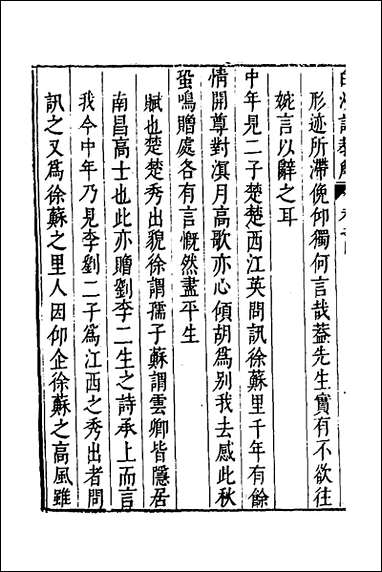 白沙詩教解
形迹所滯俛仰獨何言哉葢先生實有不欲往
婉言以辭之耳
中年見二子楚楚西江英問訊徐蘇里千年有餘
情開尊對溟月高歌亦心傾胡為別我去感此秋
蛩鳴贈處各有言慨然盡平生
賦也楚楚秀出貌徐謂孺子蘇謂雲卿皆隱居
南昌高士也此亦贈劉李二生之詩承上而言
我今中年乃見李劉二子為江西之秀出者問
訊之又為徐蘇之里人因仰企徐蘇之高風雖